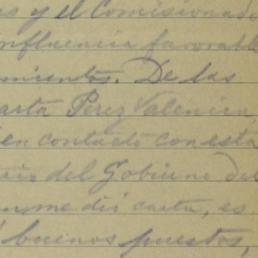 as y el Comisionado
influencia favorable
mientos. De las
arta Perez Valencia,
en contacto con esta
del Gobierno del
me dió carta, es
buenos puestos,